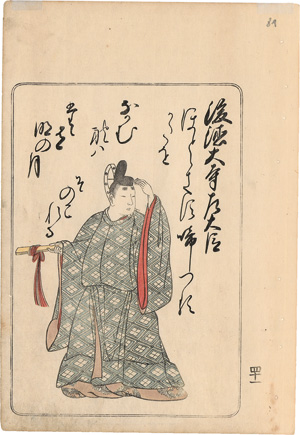 後徳大寺左大臣
ほとゝきす啼つる
かたを
なかむ
れは
たゝ
有明の月
そ
のこ
れる
四十一